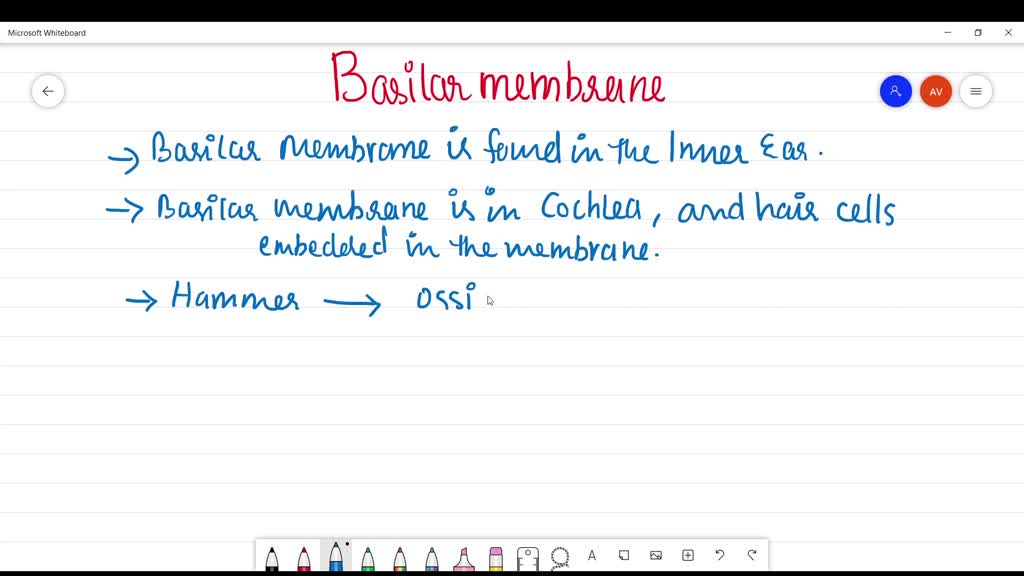 Microsoft Whiteboard
Basilar membrane
AV
→ Basilar membrane is found in the Inner Ear.
→ Basilar membrane is in Cochlea, and hair cells
embedded in the membrane.
→ Hammer → ossi
A